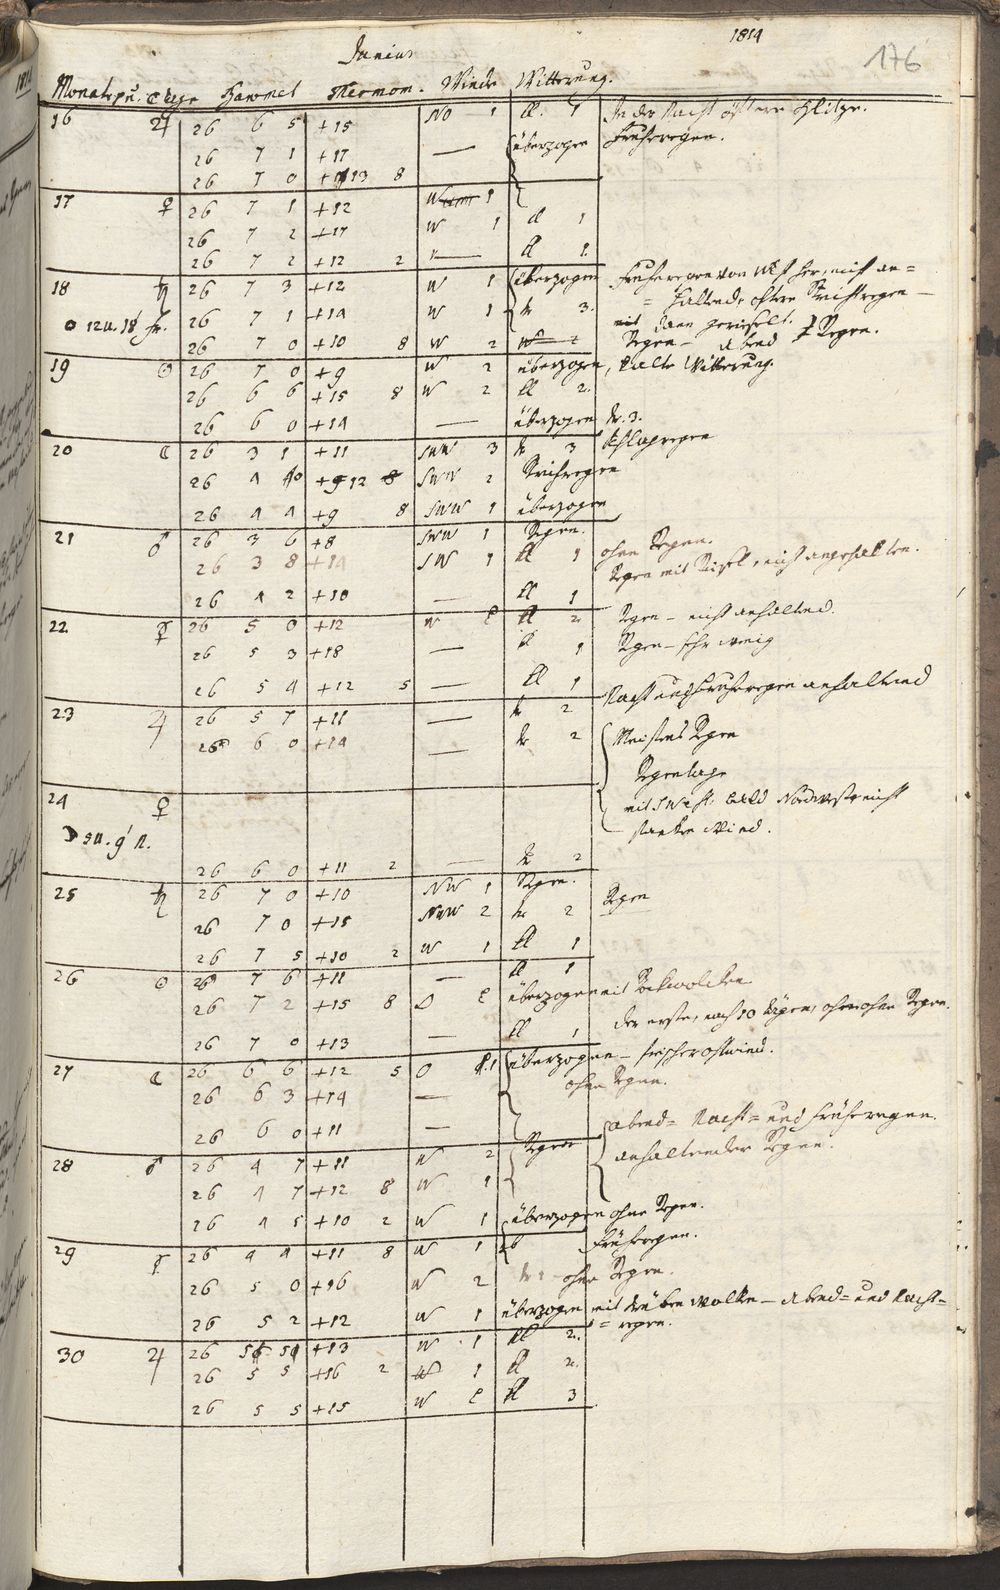 Junius 1814 176
Monatspu. Tage Baromet Thermom. Winde Witterung.
16 ♃ 26 6 5 +15 NO 1 kl. 1 In der Nacht öftere Blitze.
26 7 1 +17 — überzogen Frühregen.
26 7 0 +13 8
17 ♀ 26 7 1 +12 W 1
26 7 2 +17 W 1 kl 1
26 7 2 +12 2 — kl 1
18 ♄ 26 7 3 +12 W 1 überzogen Frühregen von West her, nicht an=
o 12 u. 18' fr. 26 7 1 +14 W 1 tr 3. = haltend, öftere Strichregen —
26 7 0 +10 8 W 2 Regen — abend Regen.
19 ☉ 26 7 0 +9 W 2 überzogen, kalte Witterung.
26 6 6 +15 8 W 2 kl 2.
26 6 0 +14 — überzogen tr. 3.
20 ☾ 26 3 1 +11 SWW 3 tr 3 Schlagregen
26 4 0 +12 SWW 2 Strichregen
26 4 4 +9 8 SWW 1 überzogen
21 ♂ 26 3 6 +8 SWW 1 Regen.
26 3 8 +14 SW 1 kl 1 ohne Regen.
Regen mit Risel, nicht angehalten.
26 4 2 +10 — kl 1
22 ☿ 26 5 0 +12 W kl 2 Regen — nicht anhaltend.
26 5 3 +18 — kl 1 Regen — sehr wenig
26 5 4 +12 5 — kl 1
23 ♃ 26 5 7 +11 — tr 2 Nacht und Frühregen anhaltend
26 6 0 +14 — tr 2 Meistens Regen
Regentage
24 ♀ mit S West. bald Nordwest nicht
☽ 5 u. 9' n. starken Wind.
26 6 0 +11 2 — tr 2
25 ♄ 26 7 0 +10 NW 1 Regen.
26 7 0 +15 NWW 2 tr 2 Regen
26 7 5 +10 2 W 1 kl 1
26 ☉ 26 7 6 +11 — kl 1
26 7 2 +15 8 O überzogen mit
der erste, nach 10 Tägen, ohne Regen.
26 7 0 +13 — kl 1
27 ☾ 26 6 6 +12 5 O überzogen — frischer ostwind.
26 6 3 +14 — ohne Regen.
26 6 0 +11 — abend= Nacht= und Frühregen.
28 ♂ 26 4 7 +11 W 2 Regen anhaltender Regen.
26 4 7 +12 8 W 1
26 4 5 +10 2 W 1 überzogen ohne Regen.
29 ☿ 26 4 4 +11 8 W 1 Frühregen.
26 5 0 +16 W 2 tr 2 ohne Regen.
26 5 2 +12 W 1 überzogen mit trüben Wolken — Abend= und Nacht=
= regen.
30 ♃ 26 +13 W 1 kl 2.
26 5 5 +16 2 W 1 kl 2.
26 5 5 +15 W kl 3